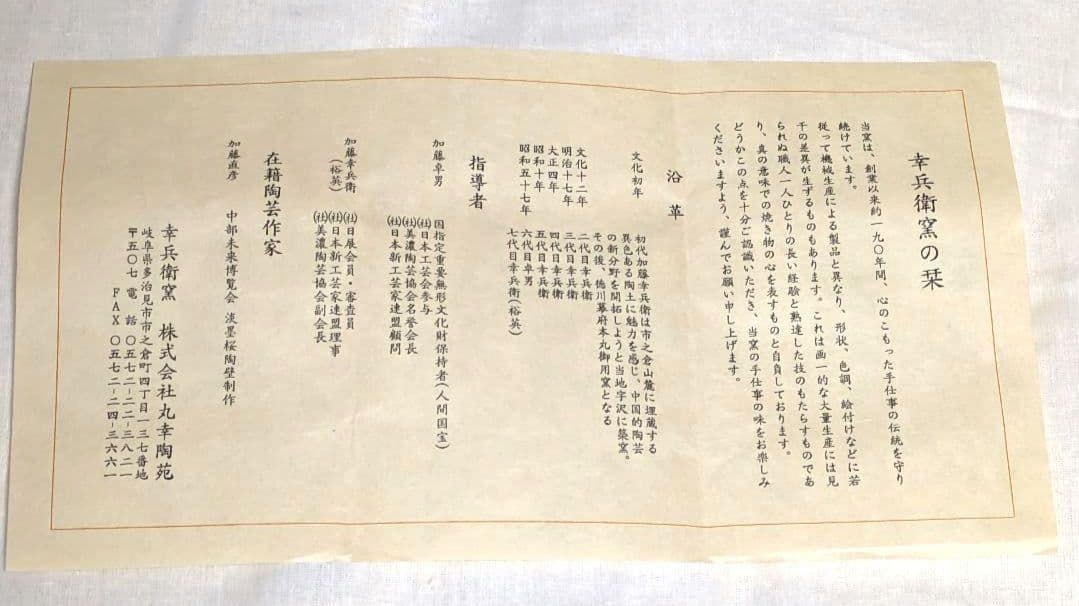 幸兵衛窯の栞
当窯は、創業以来約一九〇年間、心のこもった手仕事の伝統を守り
続けています。
従って機械生産による製品と異なり、形状、色調、絵付けなどに若
干の差異が生ずるものもあります。これは画一的な大量生産には見
られぬ職人一人ひとりの長い経験と熟達した技のもたらすものであ
り、真の意味での焼き物の心を表すものと自負しております。
どうかこの点を十分ご認識いただき、当窯の手仕事の味をお楽しみ
くださいますよう、謹んでお願い申し上げます。
沿革
文化初年 初代加藤幸兵衛は市之倉山麓に埋蔵する
異色ある陶土に魅力を感じ、中国的陶芸
の新分野を開拓しようと当地字沢に築窯。
その後、徳川幕府本丸御用窯となる
文化十二年 二代目幸兵衛
明治十七年 三代目幸兵衛
大正四年 四代目幸兵衛
昭和十年 五代目幸兵衛
昭和五十七年 六代目卓男
七代目幸兵衛(裕英)
指導者
加藤卓男 国指定重要無形文化財保持者(人間国宝)
㈳日本工芸会参与
㈳美濃陶芸協会名誉会長
㈳日本新工芸家連盟顧問
加藤幸兵衛(裕英) ㈳日展会員・審査員
㈳日本新工芸家連盟理事
㈳美濃陶芸協会副会長
在籍陶芸作家
加藤直彦 中部未来博覧会 淡墨桜陶壁制作
幸兵衛窯 株式会社丸幸陶苑
岐阜県多治見市市之倉町四丁目一三七番地
〒五〇七 電話 〇五七二-二二-三八二一
FAX 〇五七二-二四-三六六一